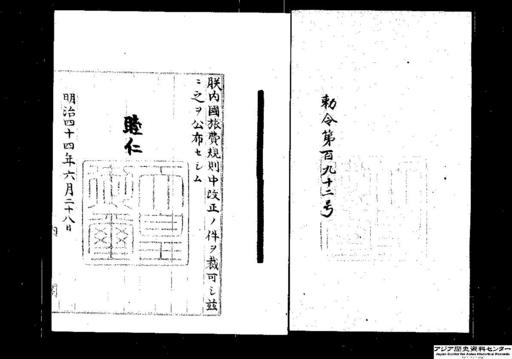 勅令第百九十二号
朕内國旅費規則中改正ノ件ヲ裁可シ茲
ニ之ヲ公布セシム
睦仁
天皇
御璽
明治四十四年六月二十八日
内
アジア歴史資料センター
Japan Center for Asian Historical Records